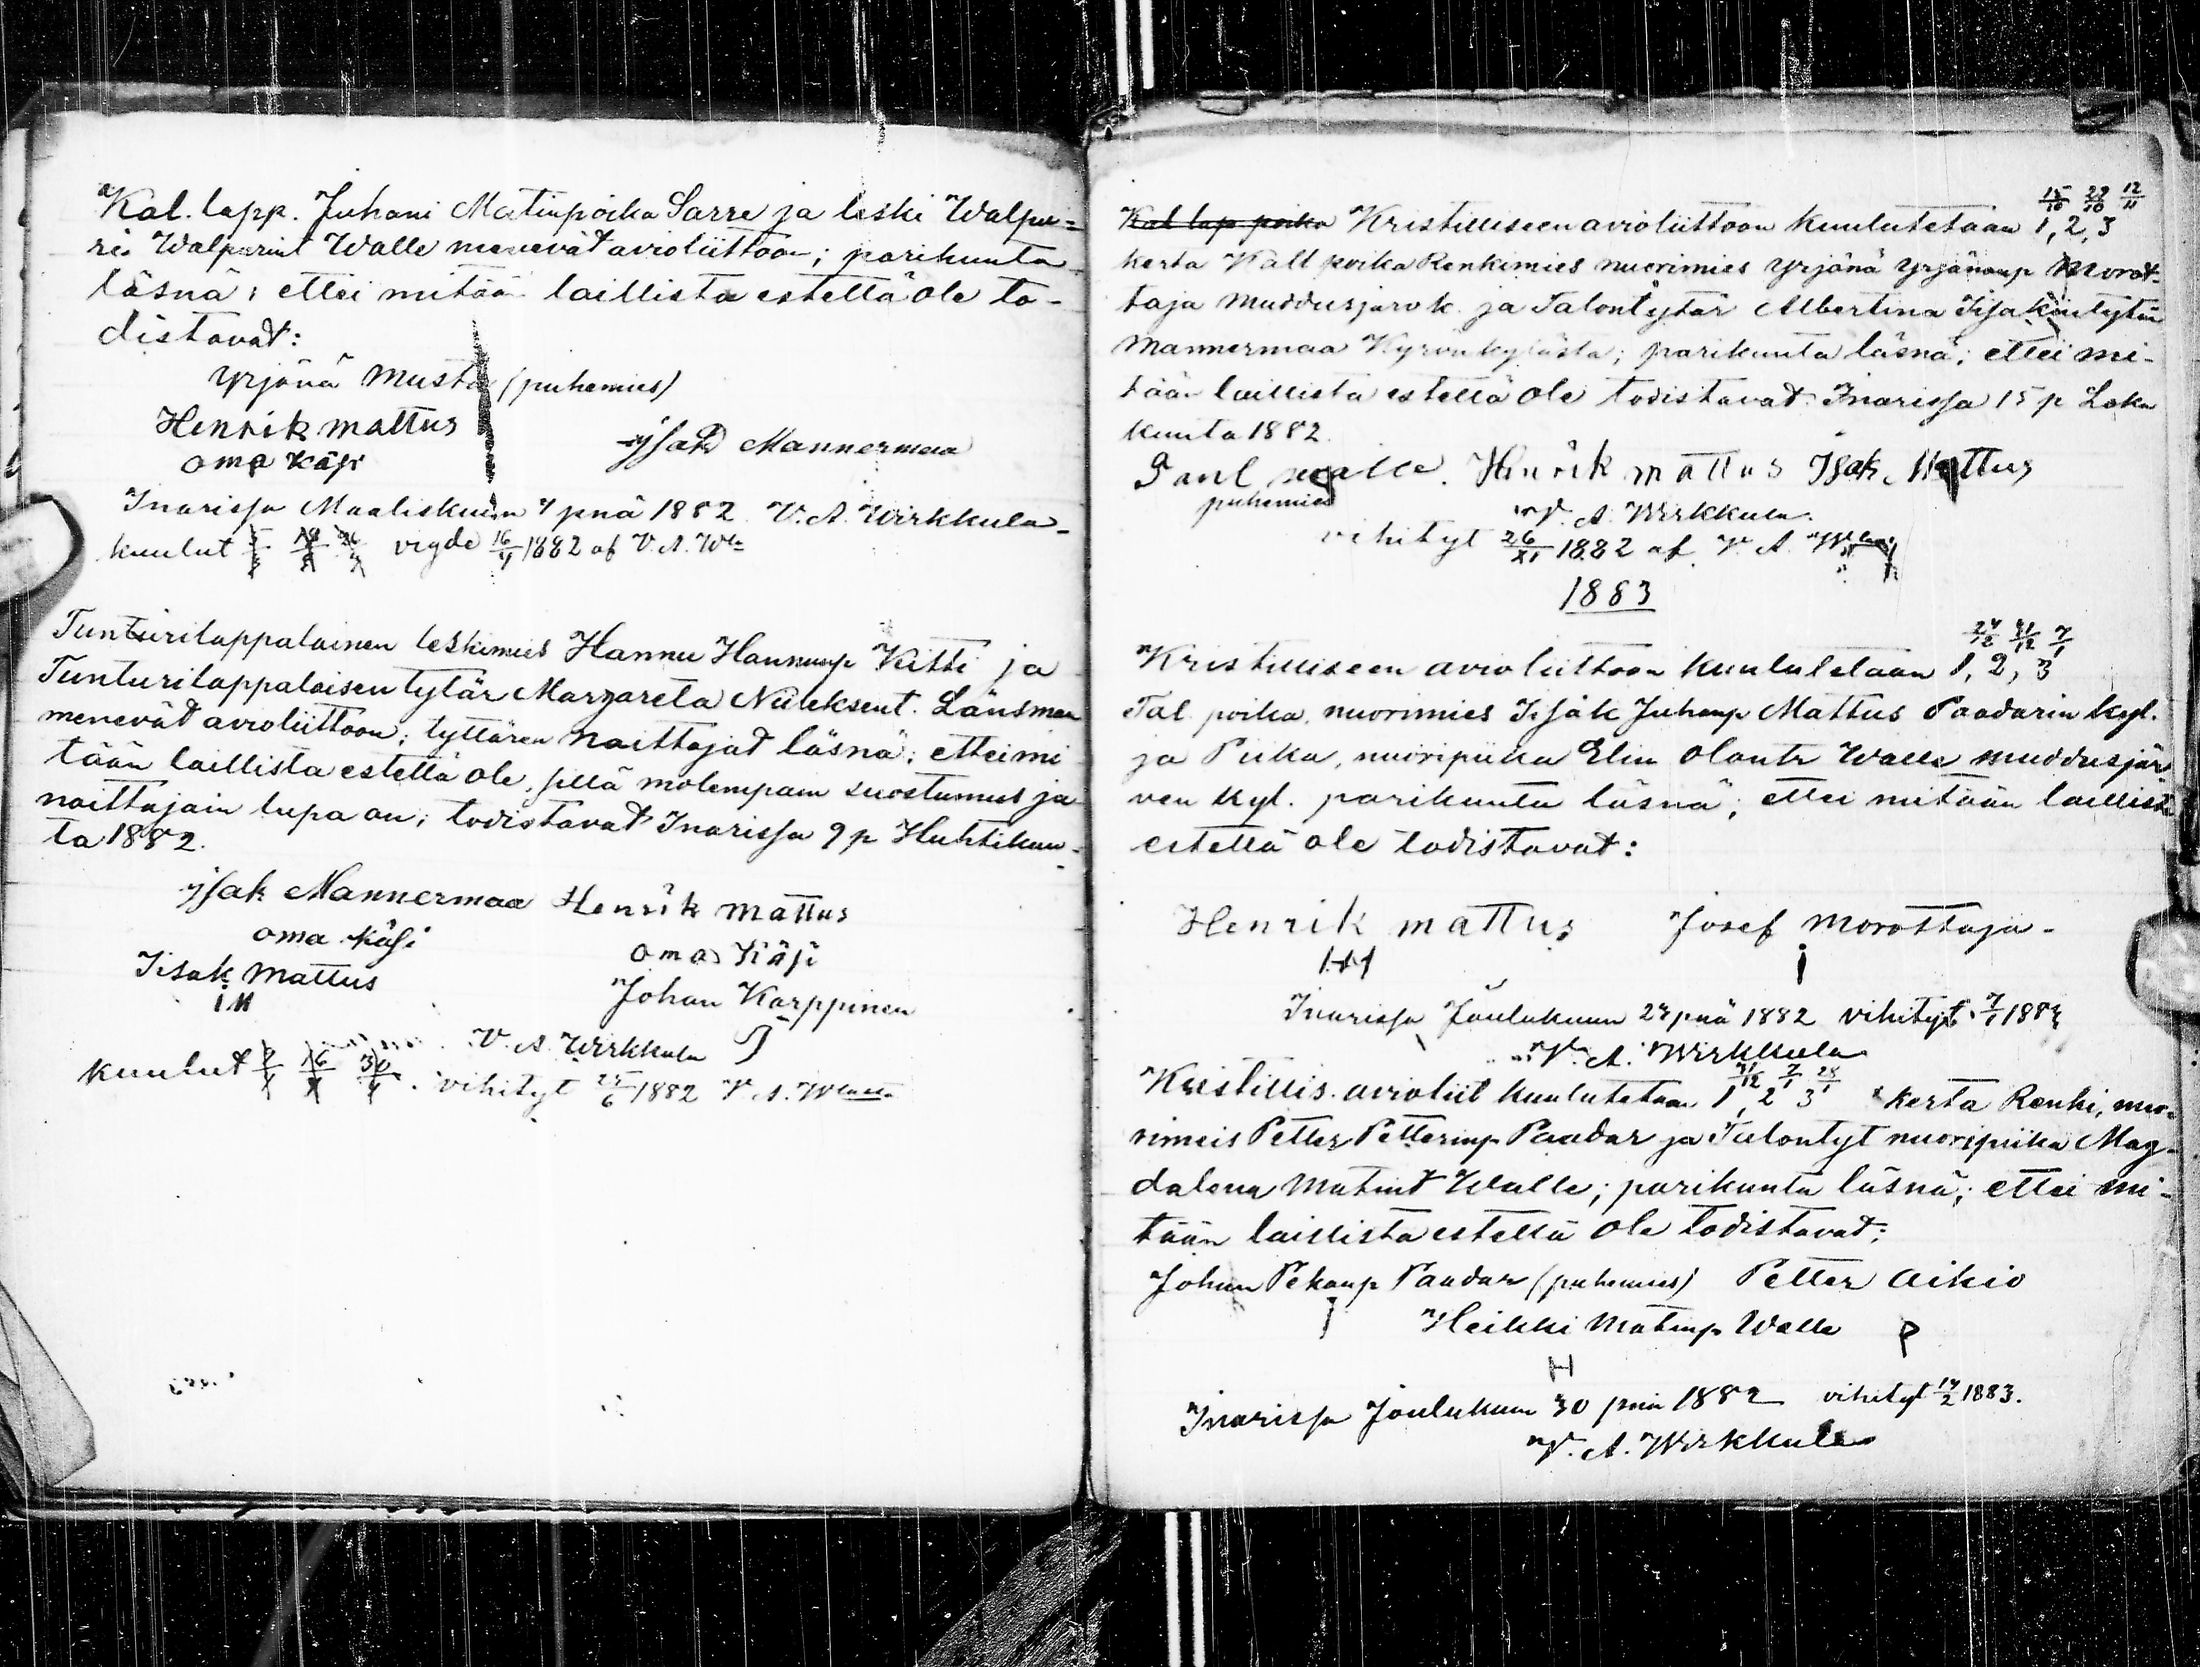 Kal. lapp. Juhani Matinpoika Sarre ja leski Walpu=
ri Walpurint Walle menevät avioliittoon; parikunta
läsnä; ettei mitään laillista estettä ole to-
distavat:
Yrjänä Musta (puhemies)
Henrik mattus
oma käsi
Isak Mannermaa
Inarissa Maaliskuun pnä 1882 V. A. Wirkkula
kuulut vigde 16/4 1882 af V. A. Wla
Tunturilappalainen leskimies Hannu Hannunp Kitti ja
Tunturilappalaisen tytär Margareta Niileksent. Länsman
menevät avioliittoon; tyttären naittajat läsnä; ettei mi
tään laillista estettä ole, sillä molempain suostumus ja
naittajain lupa on; todistavat Inarissa 9 p Huhtikuu-
ta 1882.
Isak Mannermaa Henrik mattus
oma käsi oma käsi
Iisak Mattus Johan Karppinen
IM
V. A. Wirkkula
kuulut 16/4 30/4 vihityt 25/6 1882 V. A. Wla
15/10 29/10 12/11
Kal lap poika Kristilliseen avioliittoon kuulutetaan 1, 2, 3
kerta Kall poika Renkimies nuorimies Yrjänä Yrjänänp Morot-
taja Muddusjärvk. ja Talontytär Albertina Iisakintytär
Mannermaa Kyrönkylästä; parikunta läsnä; ettei mi-
tään laillista estettä ole todistavat Inarissa 15 p Loka
kuuta 1882.
Paul walle. Henrik mattus Isak Mattus
puhemies
V. A. Wirkkula.
vihityt 26/XI 1882 af V. A. Wla
1883
24/12 31/12 7/1
Kristilliseen avioliittoon kuulutetaan 1, 2, 3
Tal. poika, nuorimies Iisak Juhanp Mattus Paadarin kyl.
ja Piika, nuoripiika Elin Olantr Walle Muddusjär
ven kyl. parikunta läsnä; ettei mitään laillista
estettä ole todistavat:
Henrik mattus Josef Morottaja-
HM
Inarissa Joulukuun 24 pnä 1882 vihityt 7/1 1883
V. A. Wirkkula
31/12 7/1 28/1
Kristillis. avioliit kuulutetaan 1, 2 3 kerta Renki, nuo-
rimeis Petter Petterinp Paadar ja Talontyt nuoripiika Mag-
dalena Matint Walle; parikunta läsnä; ettei mi-
tään laillista estettä ole todistavat:
Johan Pekanp Paadar (puhemies) Petter Aikio
Heikki Matinp Walle P
H
Inarissa Joulukuun 30 pnä 1882 vihityt 14/2 1883.
V. A. Wirkkula